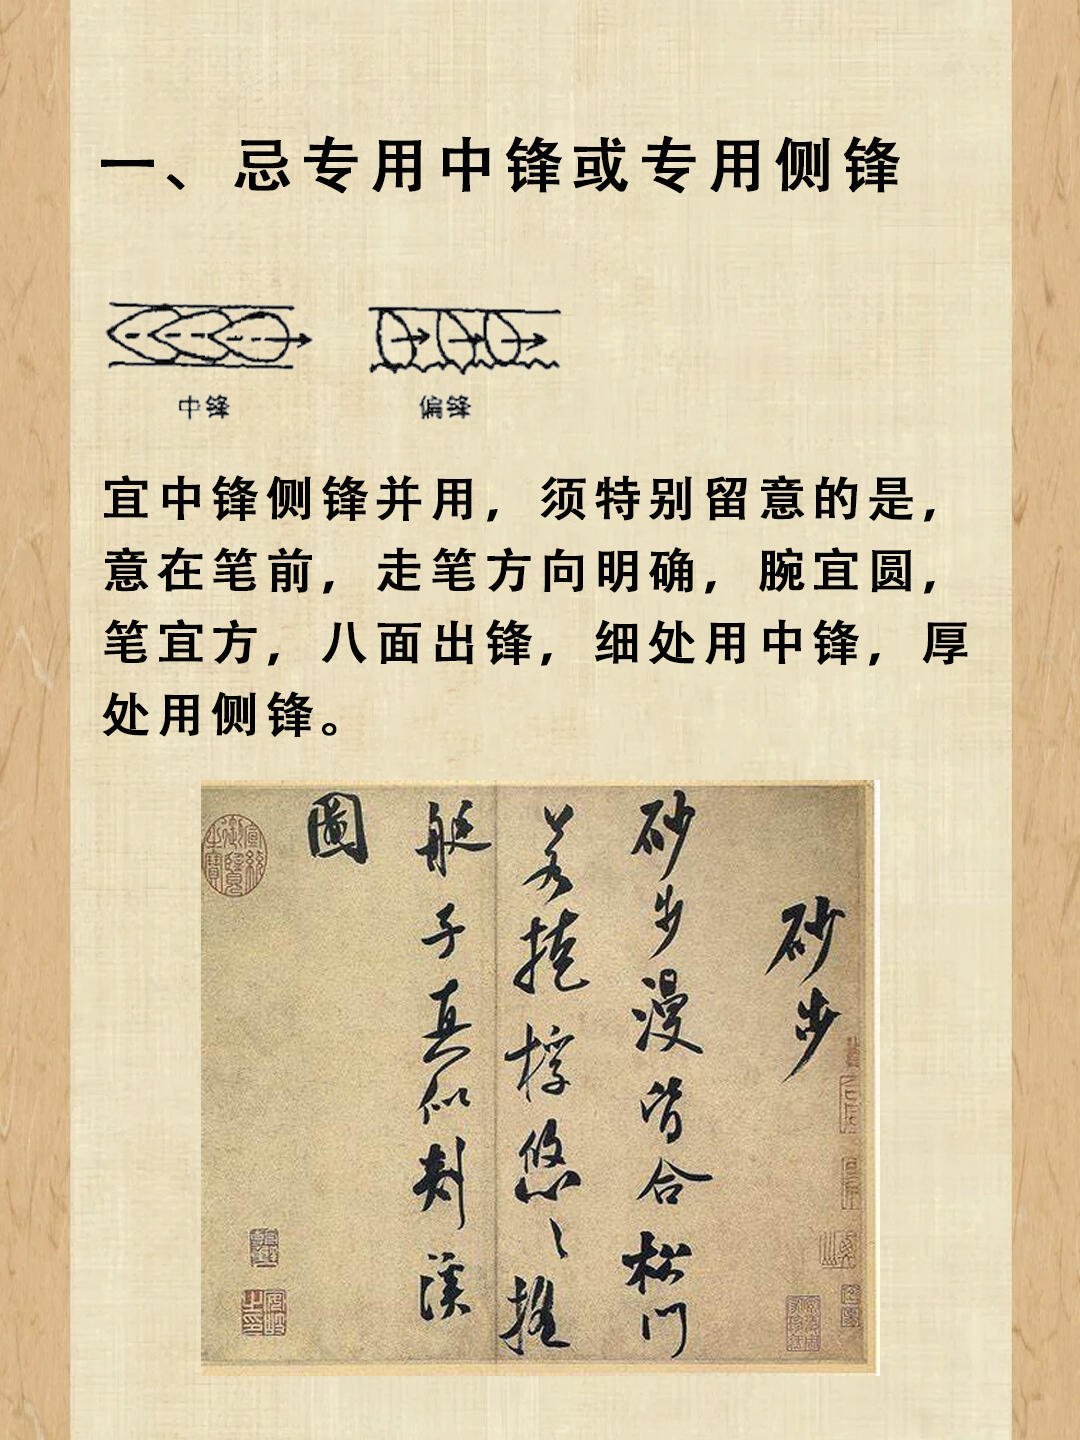 一、忌专用中锋或专用侧锋
中锋
偏锋
宜中锋侧锋并用，须特别留意的是，
意在笔前，走笔方向明确，腕宜圆，
笔宜方，八面出锋，细处用中锋，厚
处用侧锋。
砂步
砂步漫皆合松門
若掩桴悠〻搖
艇子真似剡溪
圖
宣統御覽之寶
安岐之印